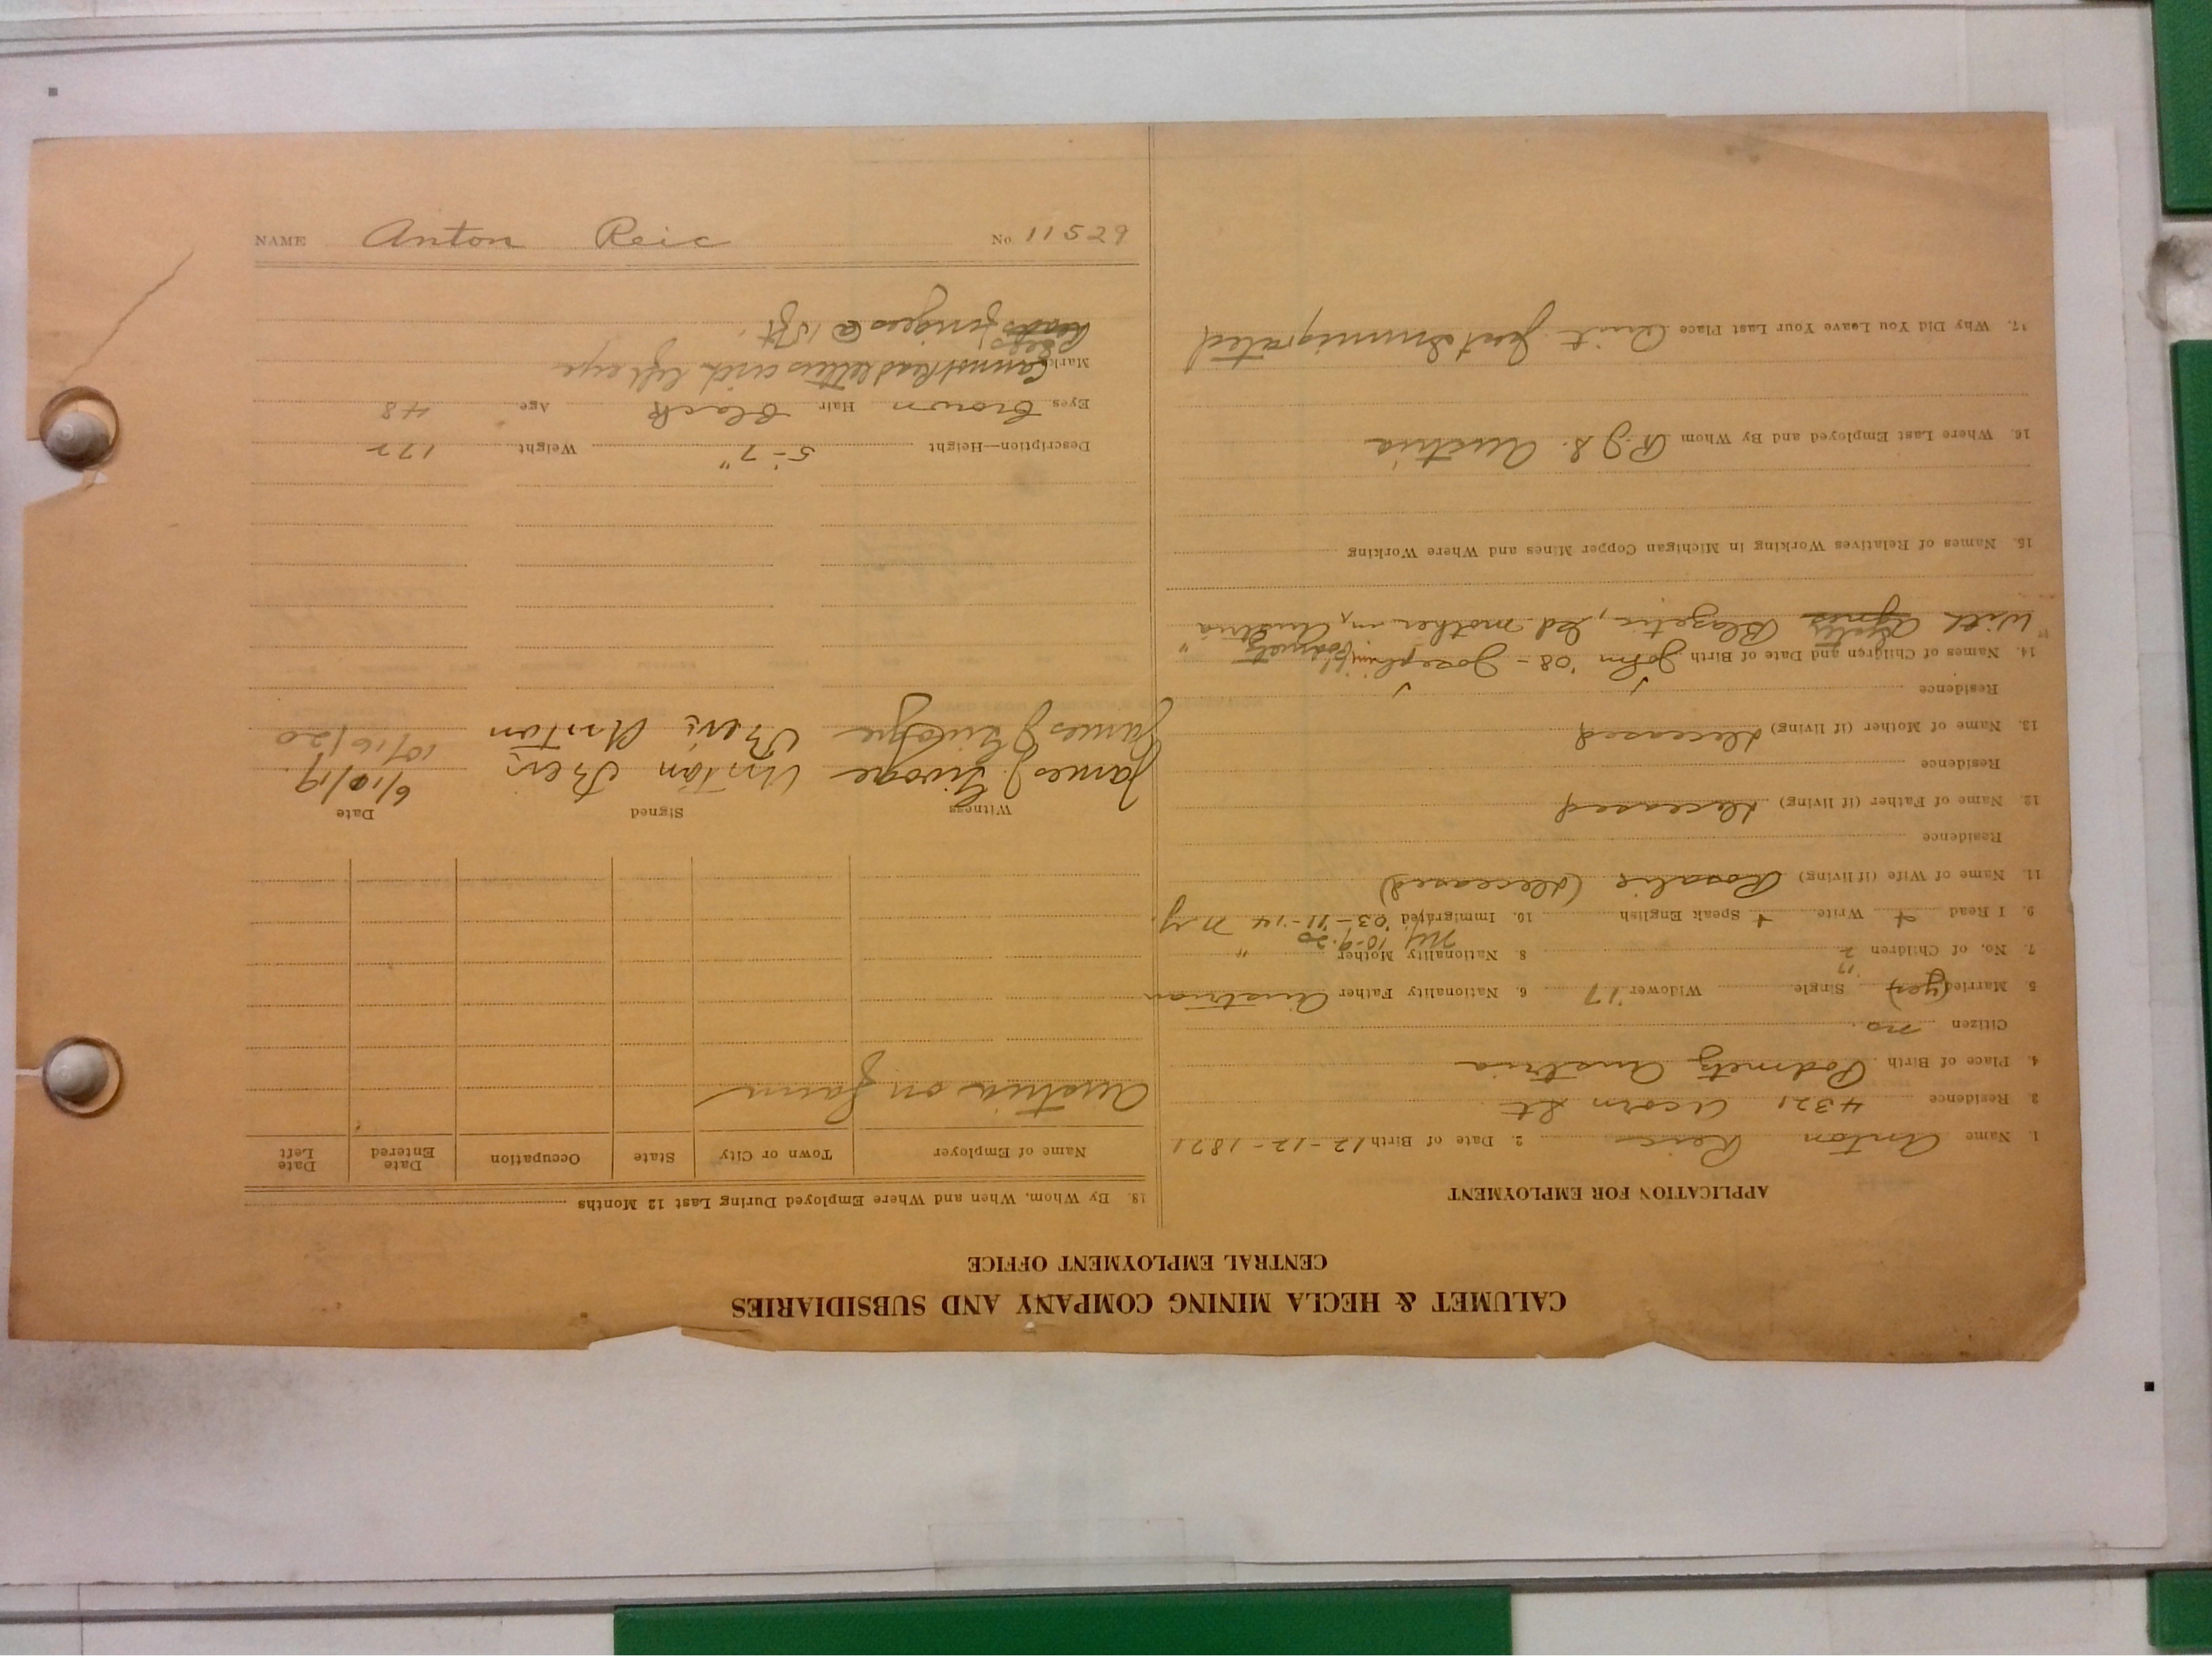 CALUMET & HECLA MINING COMPANY AND SUBSIDIARIES
CENTRAL EMPLOYMENT OFFICE
APPLICATION FOR EMPLOYMENT
1. Name Anton Reic 2. Date of Birth 12-12-1871
3. Residence 4321 Acorn St
4. Place of Birth Podmetz Austria
Citizen no.
5. Married (yes) Single Widower '17 6. Nationality Father Austrian
7. No. of Children 2 8 Nationality Mother "
NY 10-9-20
9. I Read + Write + Speak English 10. Immigrated '03-'11-'14 N.Y.
11. Name of Wife (if living) Rosalie (deceased)
Residence
12. Name of Father (if living) deceased
Residence
13. Name of Mother (if living) deceased
Residence
14. Names of Children and Date of Birth John '08 - Josephine "
With Agnes Blazetic, God mother in Austria
15. Names of Relatives Working in Michigan Copper Mines and Where Working
16. Where Last Employed and By Whom Austria
17. Why Did You Leave Your Last Place Quit Just Immigrated
18. By Whom, When and Where Employed During Last 12 Months
Name of Employer Town or City State Occupation Date Entered Date Left
Austria on farm
Witness Signed Date
James J. 6/10/19
James J. 10/16/20
Description—Height 5-7" Weight 172
Eyes brown Hair black Age 48
Marks Cannot Read letters with left eye
Reads fingers @ 15 ft.
NAME Anton Reic No 11529